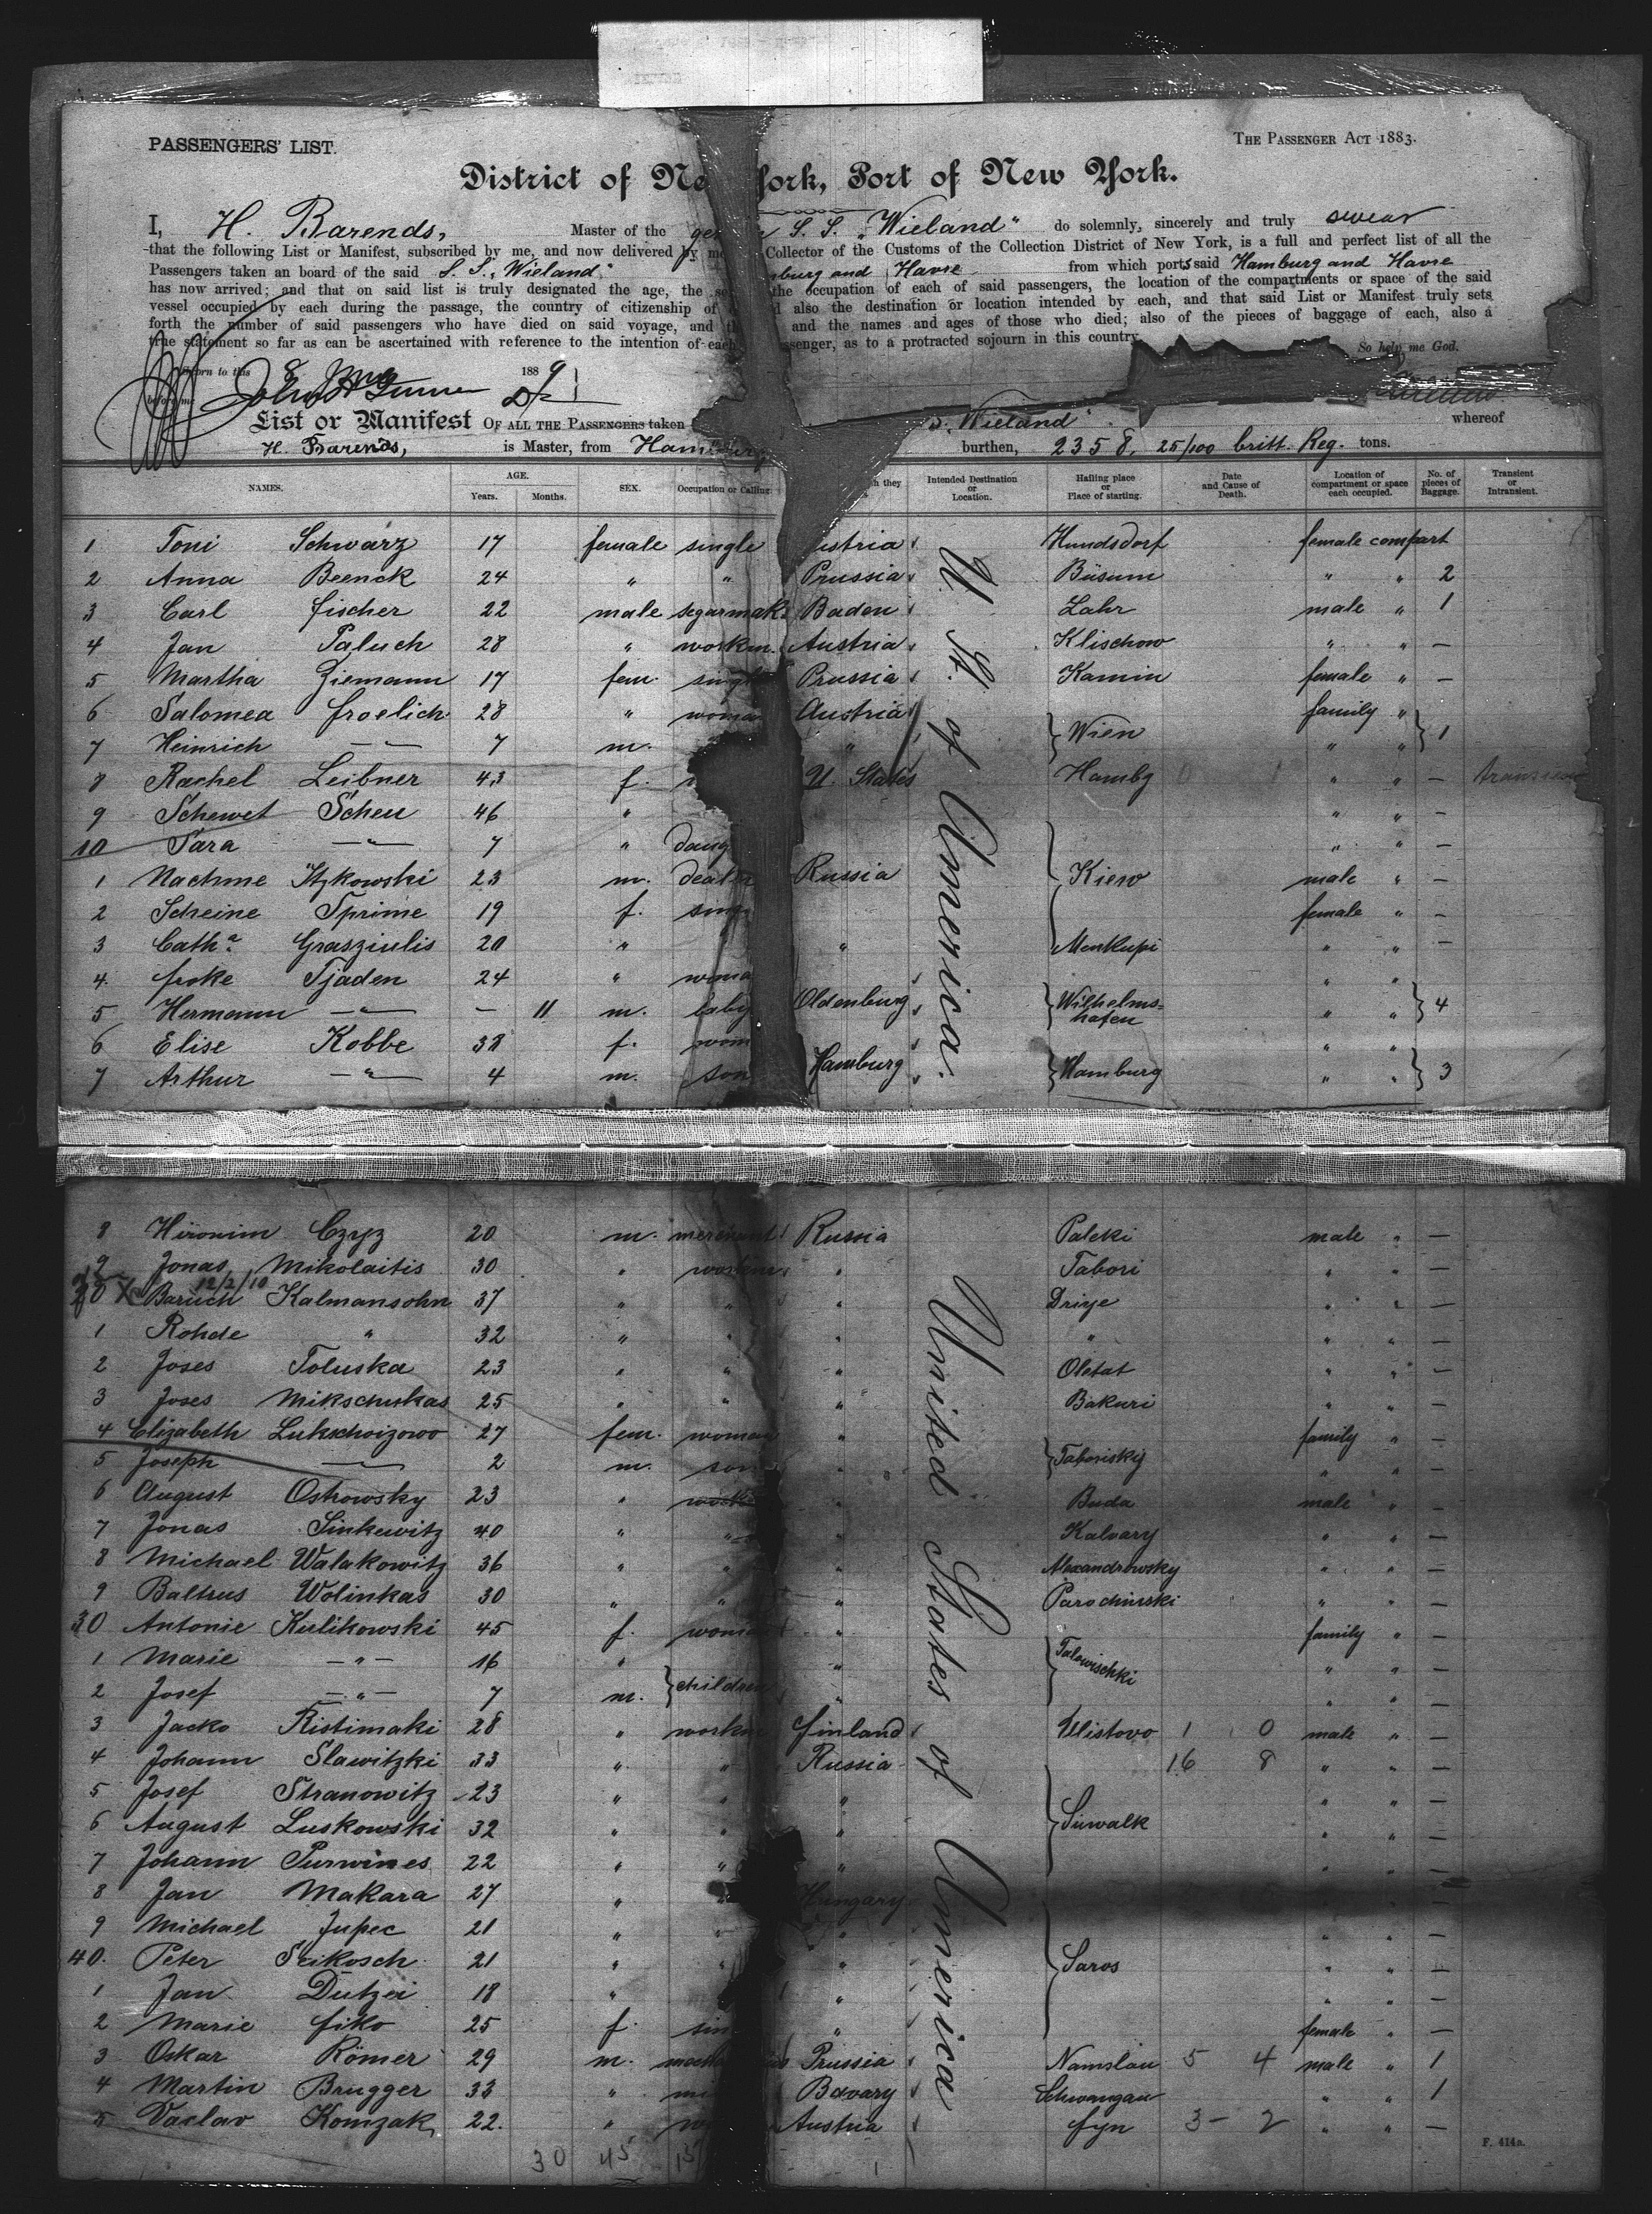 PASSENGERS' LIST.
THE PASSENGER ACT 1883.
District of Ne York, Port of New York.
I, H. Barends, Master of the S. S. „Wieland" do solemnly, sincerely and truly swear
that the following List or Manifest, subscribed by me, and now delivered by me Collector of the Customs of the Collection District of New York, is a full and perfect list of all the
Passengers taken an board of the said S. S. „Wieland" burg and Havre from which ports said Hamburg and Havre
has now arrived; and that on said list is truly designated the age, the the occupation of each of said passengers, the location of the compartments or space of the said
vessel occupied by each during the passage, the country of citizenship of also the destination or location intended by each, and that said List or Manifest truly sets
forth the number of said passengers who have died on said voyage, and and the names and ages of those who died; also of the pieces of baggage of each, also a
true statement so far as can be ascertained with reference to the intention of each senger, as to a protracted sojourn in this country.
So help me God.
Sworn to this 8 1889
before me
List or Manifest OF ALL THE PASSENGERS taken „Wieland" whereof
H. Barends, is Master, from Hamburg burthen, 2358, 25/100 britt. Reg. tons.
NAMES. AGE. Years. Months. SEX. Occupation or Calling. Intended Destination or Location. Hailing place or Place of starting. Date and Cause of Death. Location of compartment or space each occupied. No. of pieces of Baggage. Transient or Intransient.
1 Toni Schwarz 17 female single ustria Hundsdorf female compart
2 Anna Beenck 24 " " Prussia Büsum " " 2
3 Carl Fischer 22 male segarmak Baden Lahr male " 1
4 Jan Paluch 28 " workm. Austria Klischow " " —
5 Martha Ziemann 17 fem. singl Prussia Kamin female " —
6 Salomea Froelich 28 " woma Austria Wien family " 1
7 Heinrich —"— 7 m. " " "
8 Rachel Leibner 43 f. U. States Hambg " " —
9 Schewet Scheu 46 " " " —
10 Sara —"— 7 " daug " " —
1 Nachme Itzkowski 23 m. deal Russia Kiew male " —
2 Scheine Sprime 19 f. sing female " —
3 Cath.a Grasziulis 20 " " Menkupi " " —
4. Frke Tjaden 24 " woma Oldenburg Wilhelms=hafen " " 4
5 Hermann —"— — 11 m. baby " "
6 Elise Kobbe 38 f. wom Hamburg Hamburg " " 3
7 Arthur —"— 4 m. son " "
U. St. of America.
8 Hironim Czyz 20 m. merchant Russia Palcki male " —
9 Jonas Mikolaitis 30 " workm " Tabori " " —
20 X Baruch 12/2/10 Kalmansohn 37 " " " Driye " " —
1 Rohde " 32 " " " " " " —
2 Joses Toluska 23 " " " Oletat " " —
3 Joses Mikschuskas 25 " " " Bakuri " " —
4 Elizabeth Lukschoizowo 27 fem. woman " Taborisky family " —
5 Joseph —— 2 m. son " " " —
6 August Ostrowsky 23 " work " Buda male " —
7 Jonas Sinkewitz 40 " " " Kalvary " " —
8 Michael Walakowitz 36 " " " Alexandrowsky " " —
9 Baltrus Wolinkas 30 " " " Parochinski " " —
30 Antonie Kulikowski 45 f. woma " Talowischki family " —
1 Marie —"— 16 " children " " " —
2 Josef —"— 7 m. " " " —
3 Jacko Ristimaki 28 " workm Finland Ulistovo 1 0 male " —
4 Johann Slawitzki 33 " " Russia 16 8 " " —
5 Josef Stranowitz 23 " " " Suwalk " " —
6 August Luskowski 32 " " " " " —
7 Johann Purwines 22 " " " " " —
8 Jan Makara 27 " " Hungary " " —
9 Michael Jupec 21 " " " " " —
40. Peter Seikosch 21 " " " Saros " " —
1 Jan Dutzei 18 " " " " —
2 Marie Fiko 25 f. sin " female " —
3 Oskar Römer 29 m. mach Prussia Namslau 5 4 male " 1
4 Martin Brugger 33 " mi Bavary Schwangau " " 1
5 Vaclav Komzak 22. " w Austria Fyn 3- 2 " " —
United States of America
30 45 15
F. 414a.